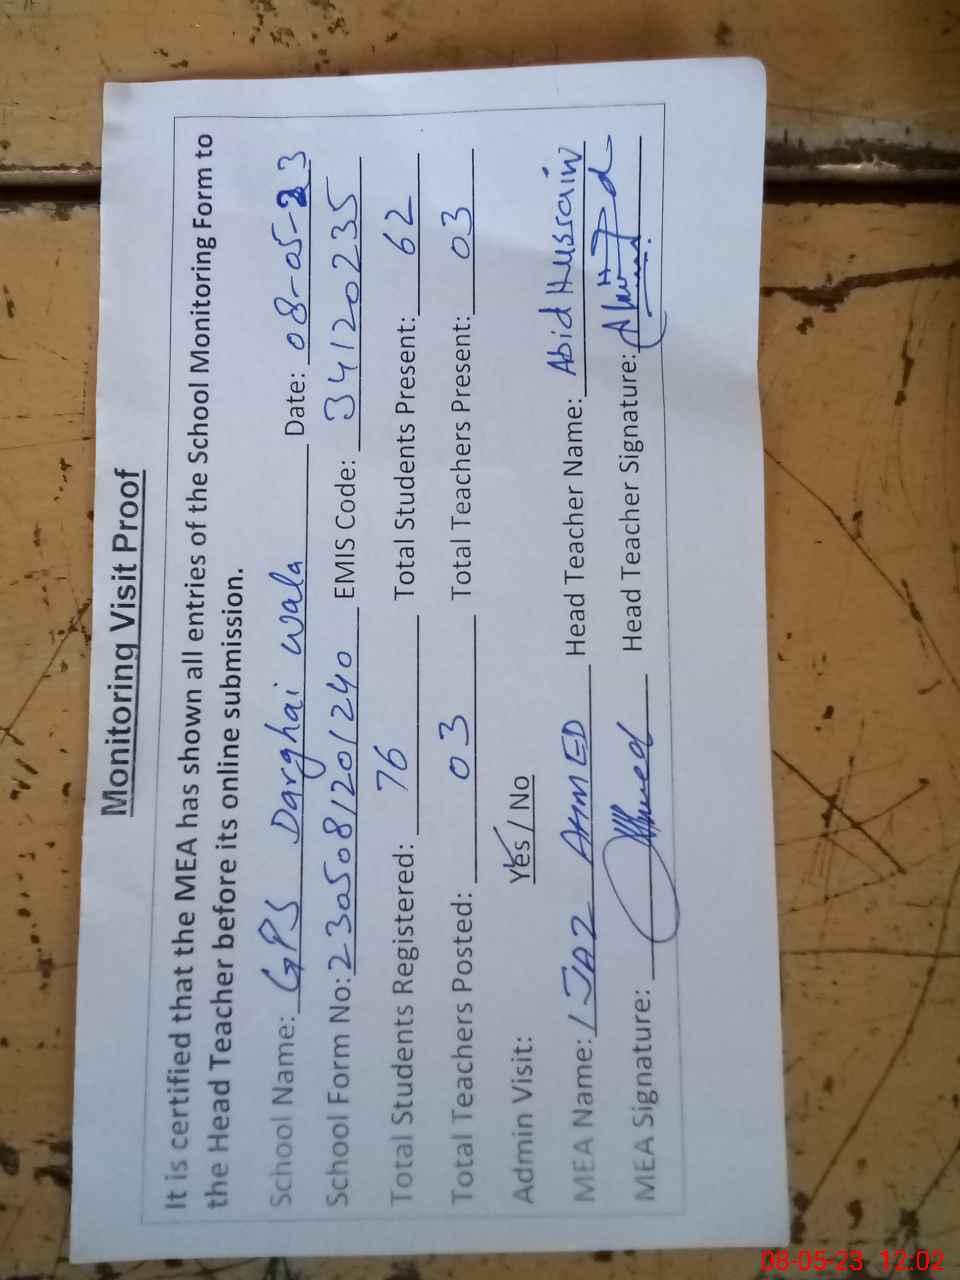 Monitoring Visit Proof
It is certified that the MEA has shown all entries of the School Monitoring Form to
the Head Teacher before its online submission.
School Name: GPS Darghai wala Date: 08-05-23
School Form No: 2305081201240 EMIS Code: 34120235
Total Students Registered: 76 Total Students Present: 62
Total Teachers Posted: 03 Total Teachers Present: 03
Admin Visit: Yes / No
MEA Name: IJAZ AHMED Head Teacher Name: Abid Hussain
MEA Signature: Ahmed Head Teacher Signature:
08-05-23 12:02